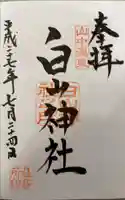 奉拝
山中温泉
白山神社
平成二七年七月二十四日